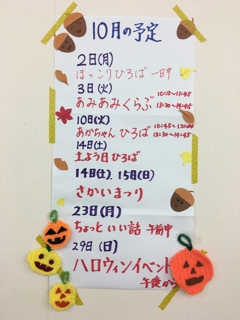 10月の予定
2日(月)
ほっこりひろば 一日中
3日(火)
あみあみくらぶ
10日(火)
あかちゃんひろば
14日(土)
土よう日ひろば
14日(土)、15日(日)
さかいまつり
23日(月)
ちょっといい話 午前中
29日(日)
ハロウィンイベント
午後から